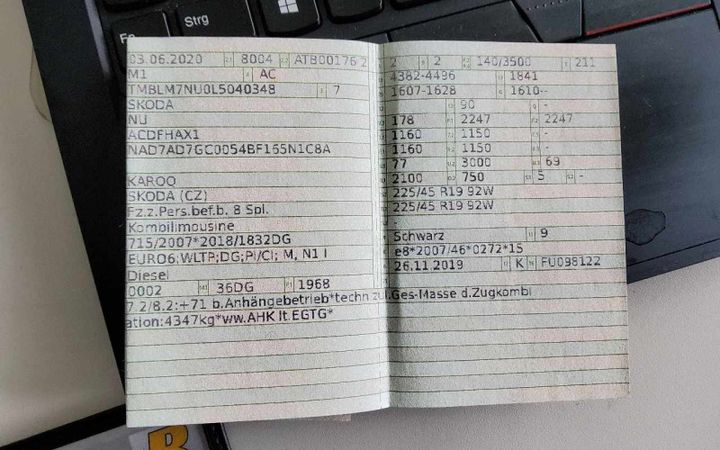 Strg
Fn
03.06.2020 8004 ATB00176 2
M1 AC
TMBLM7NU0L5040348 7
SKODA
NU
ACDFHAX1
NAD7AD7GC0054BF165N1C8A
KAROO
SKODA (CZ)
Fz.z.Pers.bef.b. 8 Spl.
Kombilimousine
715/2007*2018/1832DG
EURO6;WLTP;DG;PI/CI; M, N1 I
Diesel
0002 36DG 1968
7.2/8.2:+71 b.Anhängebetrieb*techn.zul.Ges-Masse d.Zugkombi
ation:4347kg*ww.AHK lt.EGTG*
2 2 140/3500 211
4382-4496 1841
1607-1628 1610--
90 -
178 2247 2247
1160 1150 -
1160 1150 -
77 3000 69
2100 750 5 -
225/45 R19 92W
225/45 R19 92W
-
Schwarz 9
e8*2007/46*0272*15
26.11.2019 K FU098122